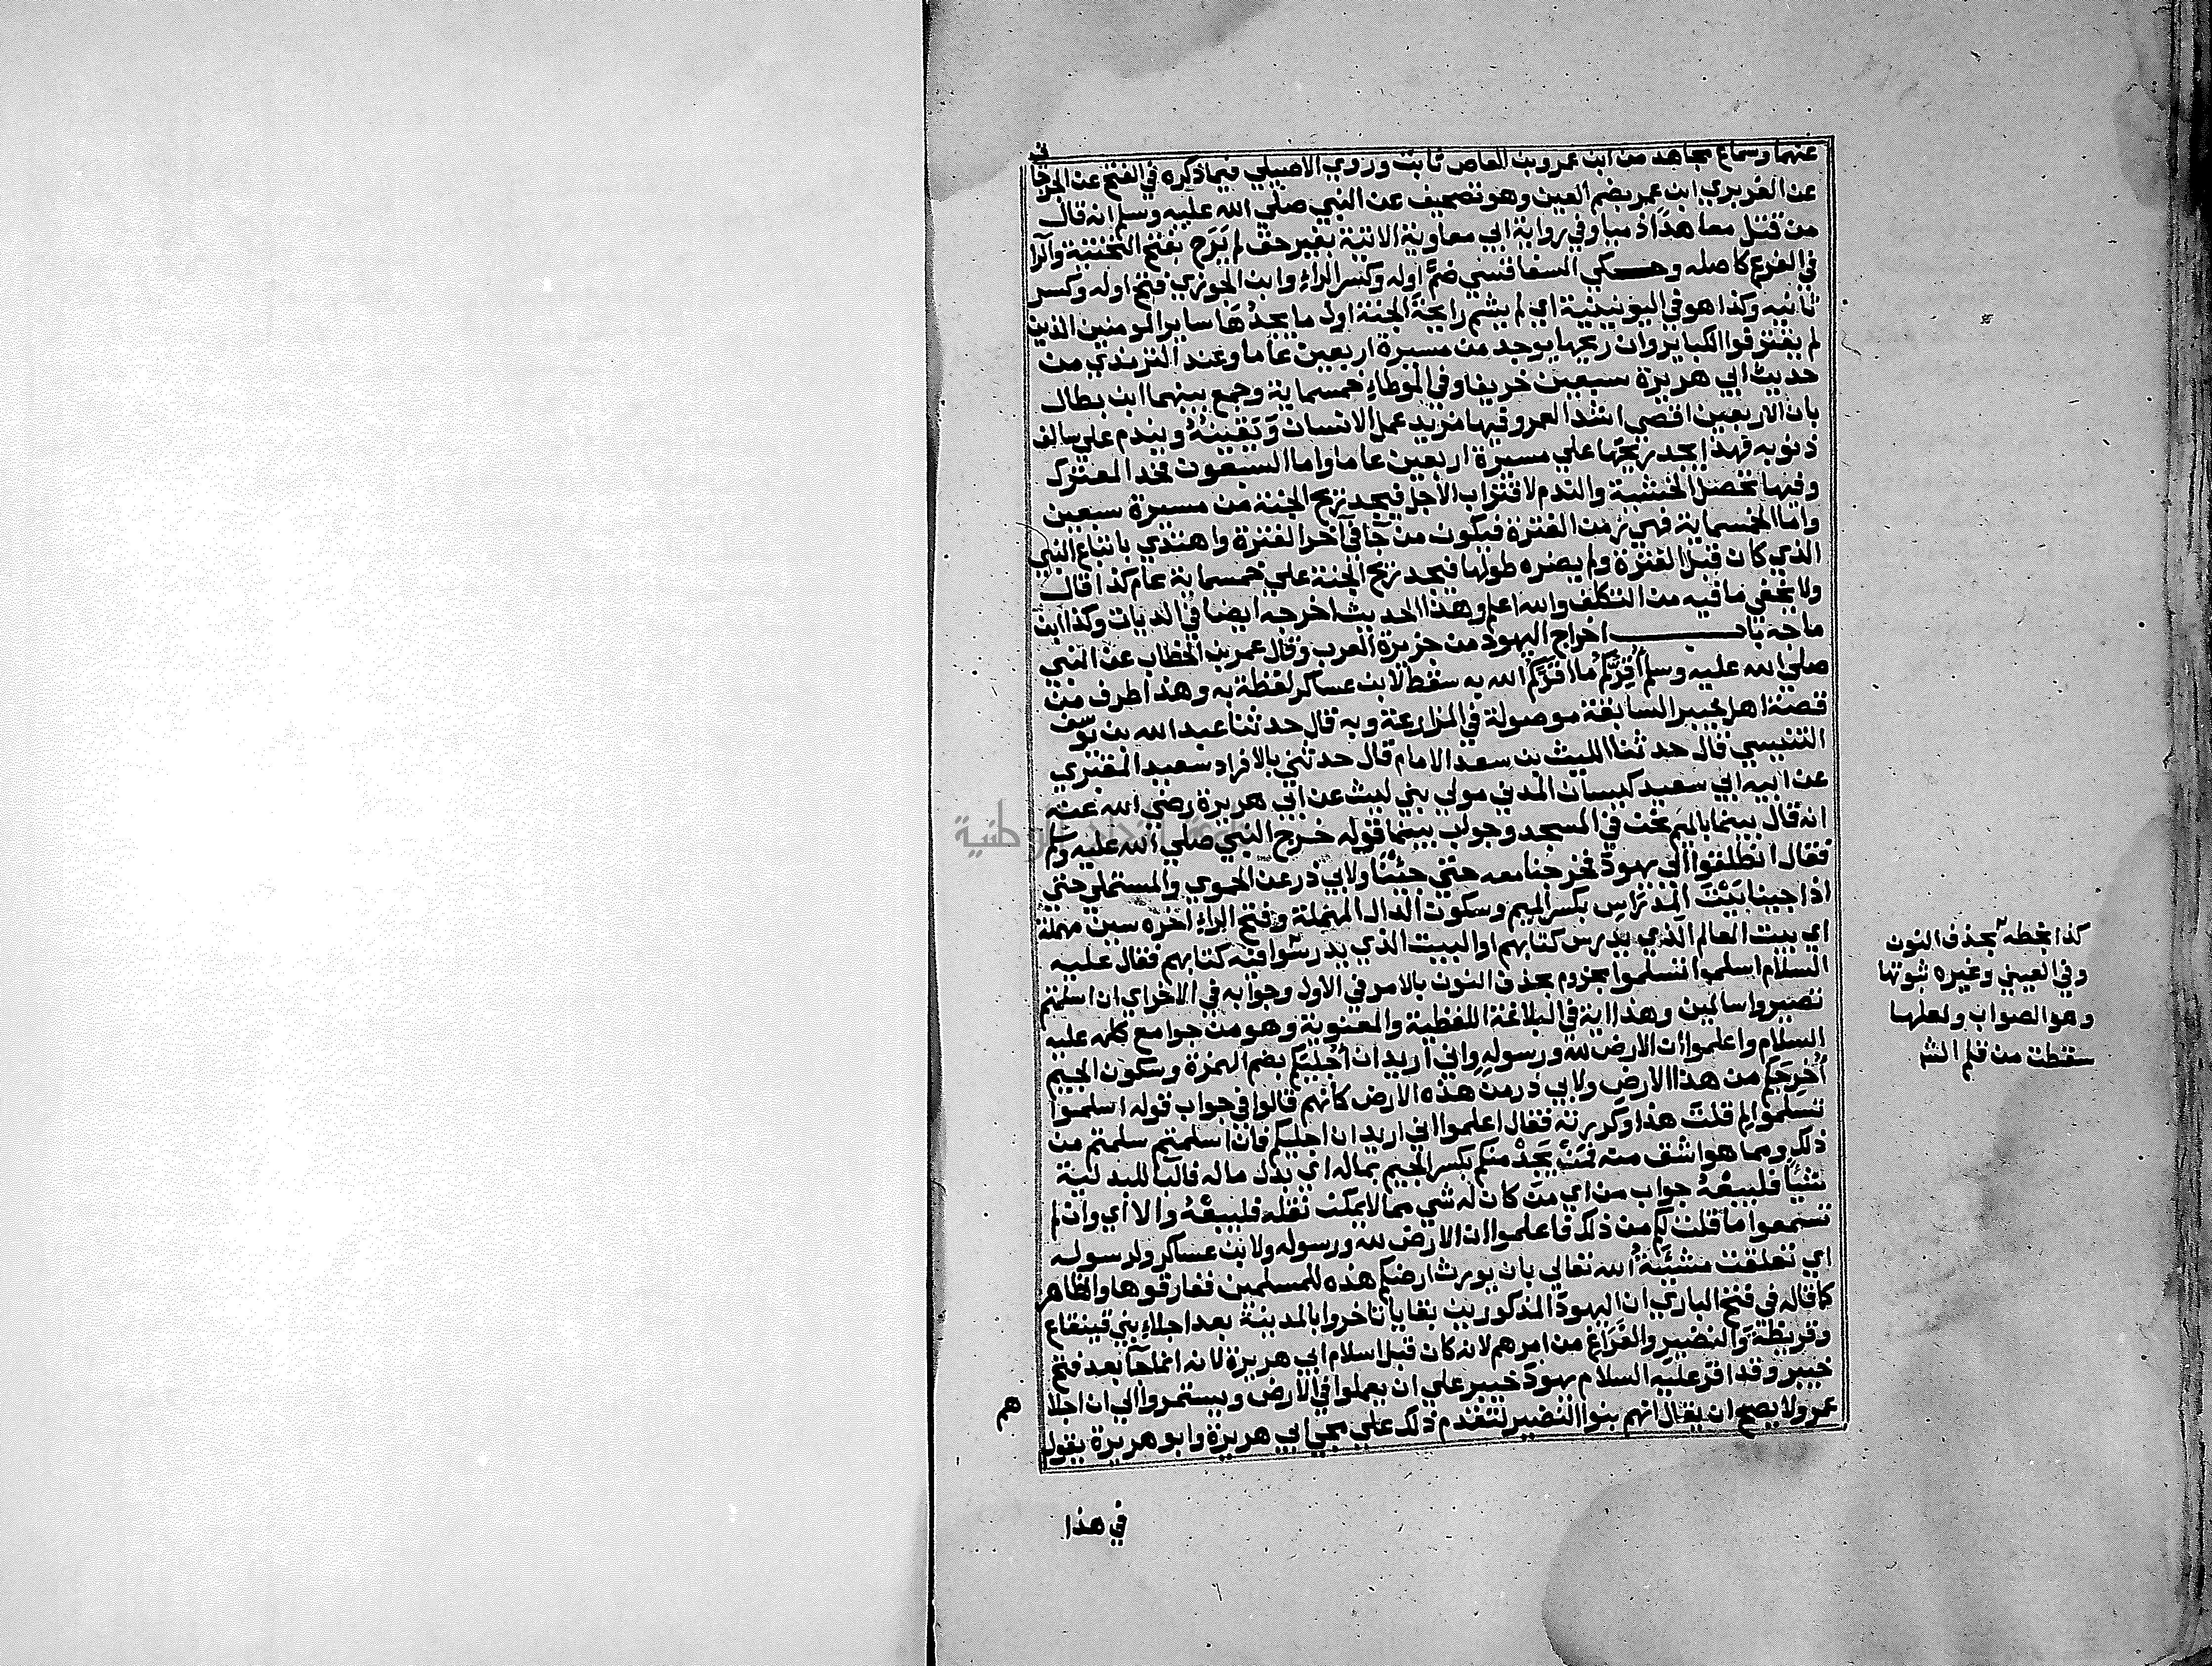 عنهما وسماع مجاهد من ابن عمرو بن العاص ثابت وروي الاصيلي فيما ذكره في الفتح عن الجرجاني
عن الفربري ابن عمر بضم العين وهو تصحيف عن النبي صلي الله عليه وسلم انه قال
من قتل معاهدا ذميا وفي رواية ابي معاوية الاتية بغير حق لم يَرَح بفتح التحتية والرا
في الفرع كاصله وحكي السفاقسي ضم اوله وكسر الراء وابن الجوزي فتح اوله وكسر
ثانيه وكذا هو في اليونينية اي لم يشم رايحة الجنة اول ما يجدها ساير المومنين الذين
لم يقترفوا الكباير وان ريحها يوجد من مسيرة اربعين عاما وعند الترمذي من
حديث ابي هريرة سبعين خريفا وفي الموطاء خمسماية وجمع بينهما ابن بطال
بان الاربعين اقصي اشد العمر وفيها مزيد عمل الانسان ويقينه ويندم علي سالف
ذنوبه فهذا يجد ريحها علي مسيرة اربعين عاما واما السبعون فحد المعترك
وفيها تحصل الخشية والندم لاقتراب الاجل فيجد ريح الجنة من مسيرة سبعين
واما الخمسماية فهي زمن الفترة فيكون من جا في اخر الفترة واهتدي باتباع النبي
الذي كان قبل الفترة ولم يضره طولها فيجد ريح الجنة علي خمسماية عام كذا قال
ولا يخفي ما فيه من التكلف والله اعلم وهذا الحديث اخرجه ايضا في الديات وكذا ابن
ماجه باب اخراج اليهود من جزيرة العرب وقال عمر بن الخطاب عن النبي
صلي الله عليه وسلم اُقِرُّكُم ما اقرّكم الله به سقط لابن عساكر لفظة به وهذا طرف من
قصة اهل خيبر السابقة موصولة في المزارعة وبه قال حدثنا عبد الله بن يوسف
التنيسي قال حدثنا الليث بن سعد الامام قال حدثني بالافراد سعيد المقبري
عن ابيه ابي سعيد كيسان المدني مولي بني ليث عن ابي هريرة رضي الله عنه
انه قال بينما بالميم نحن في المسجد وجواب بينما قوله خرج النبي صلي الله عليه وسلم
فقال انطلقوا الي يهود فخرجنا معه حتي جئنا ولابي ذر عن الحموي والمستملي حتي
اذا جينا بَيْتَ المِدْرَاسِ بكسر الميم وسكون الدال المهملة وفتح الراء اخره سين مهملة
اي بيت العالم الذي يدرس كتابهم او البيت الذي يدرسوا فيه كتابهم فقال عليه
السلام اسلموا تسلموا مجزوم بحذف النون بالامر في الاول وجوابه في الاخر اي ان اسلمتم
تصيروا سالمين وهذا اية في البلاغة اللفظية والمعنوية وهو من جوامع كلمه عليه
السلام واعلموا ان الارض لله ورسولِهِ واني اريد ان اُجْلِيَكم بضم الهمزة وسكون الجيم
اُخرِجكم من هذا الارض ولابي ذر من هذه الارض كانهم قالوا في جواب قوله اسلموا
تسلموا لم قلت هذا وكررته فقال اعلموا اني اريد ان اجليكم فان اسلمتم سلمتم من
ذلك ومما هو اشق منه فمن يَجِدْ منكم بكسر الجيم بماله اي بدل ماله فالبا للبدلية
شيًا فليبعْهُ جواب من اي من كان له شي مما لا يمكن نقله فليبعْهُ والا اي وان لم
تسمعوا ما قلت لكم من ذلك فاعلموا ان الارض لله ورسوله ولابن عساكر ولرسوله
اي تعلقت مشيَّئةُ الله تعالي بان يورث ارضكم هذه للمسلمين ففارقوها والظاهر
كما قاله في فتح الباري ان اليهود المذكورين بقايا تاخروا بالمدينة بعد اجلاء بني قينقاع
وقريظة والنضير والفراغ من امرهم لانه كان قبل اسلام ابي هريرة لانه انما جا بعد فتح
خيبر وقد اقر عليه السلام يهود خيبر علي ان يعملوا في الارض ويستمروا الي ان اجلاهم
عمر ولا يصح ان يقال انهم بنوا النضير لتقدم ذلك علي مجي ابي هريرة وابو هريرة يقول
في هذا
كذا بخطه بحذف النون
وفي العيني وغيره ثبوتها
وهو الصواب ولعلها
سقطت من قلم الش